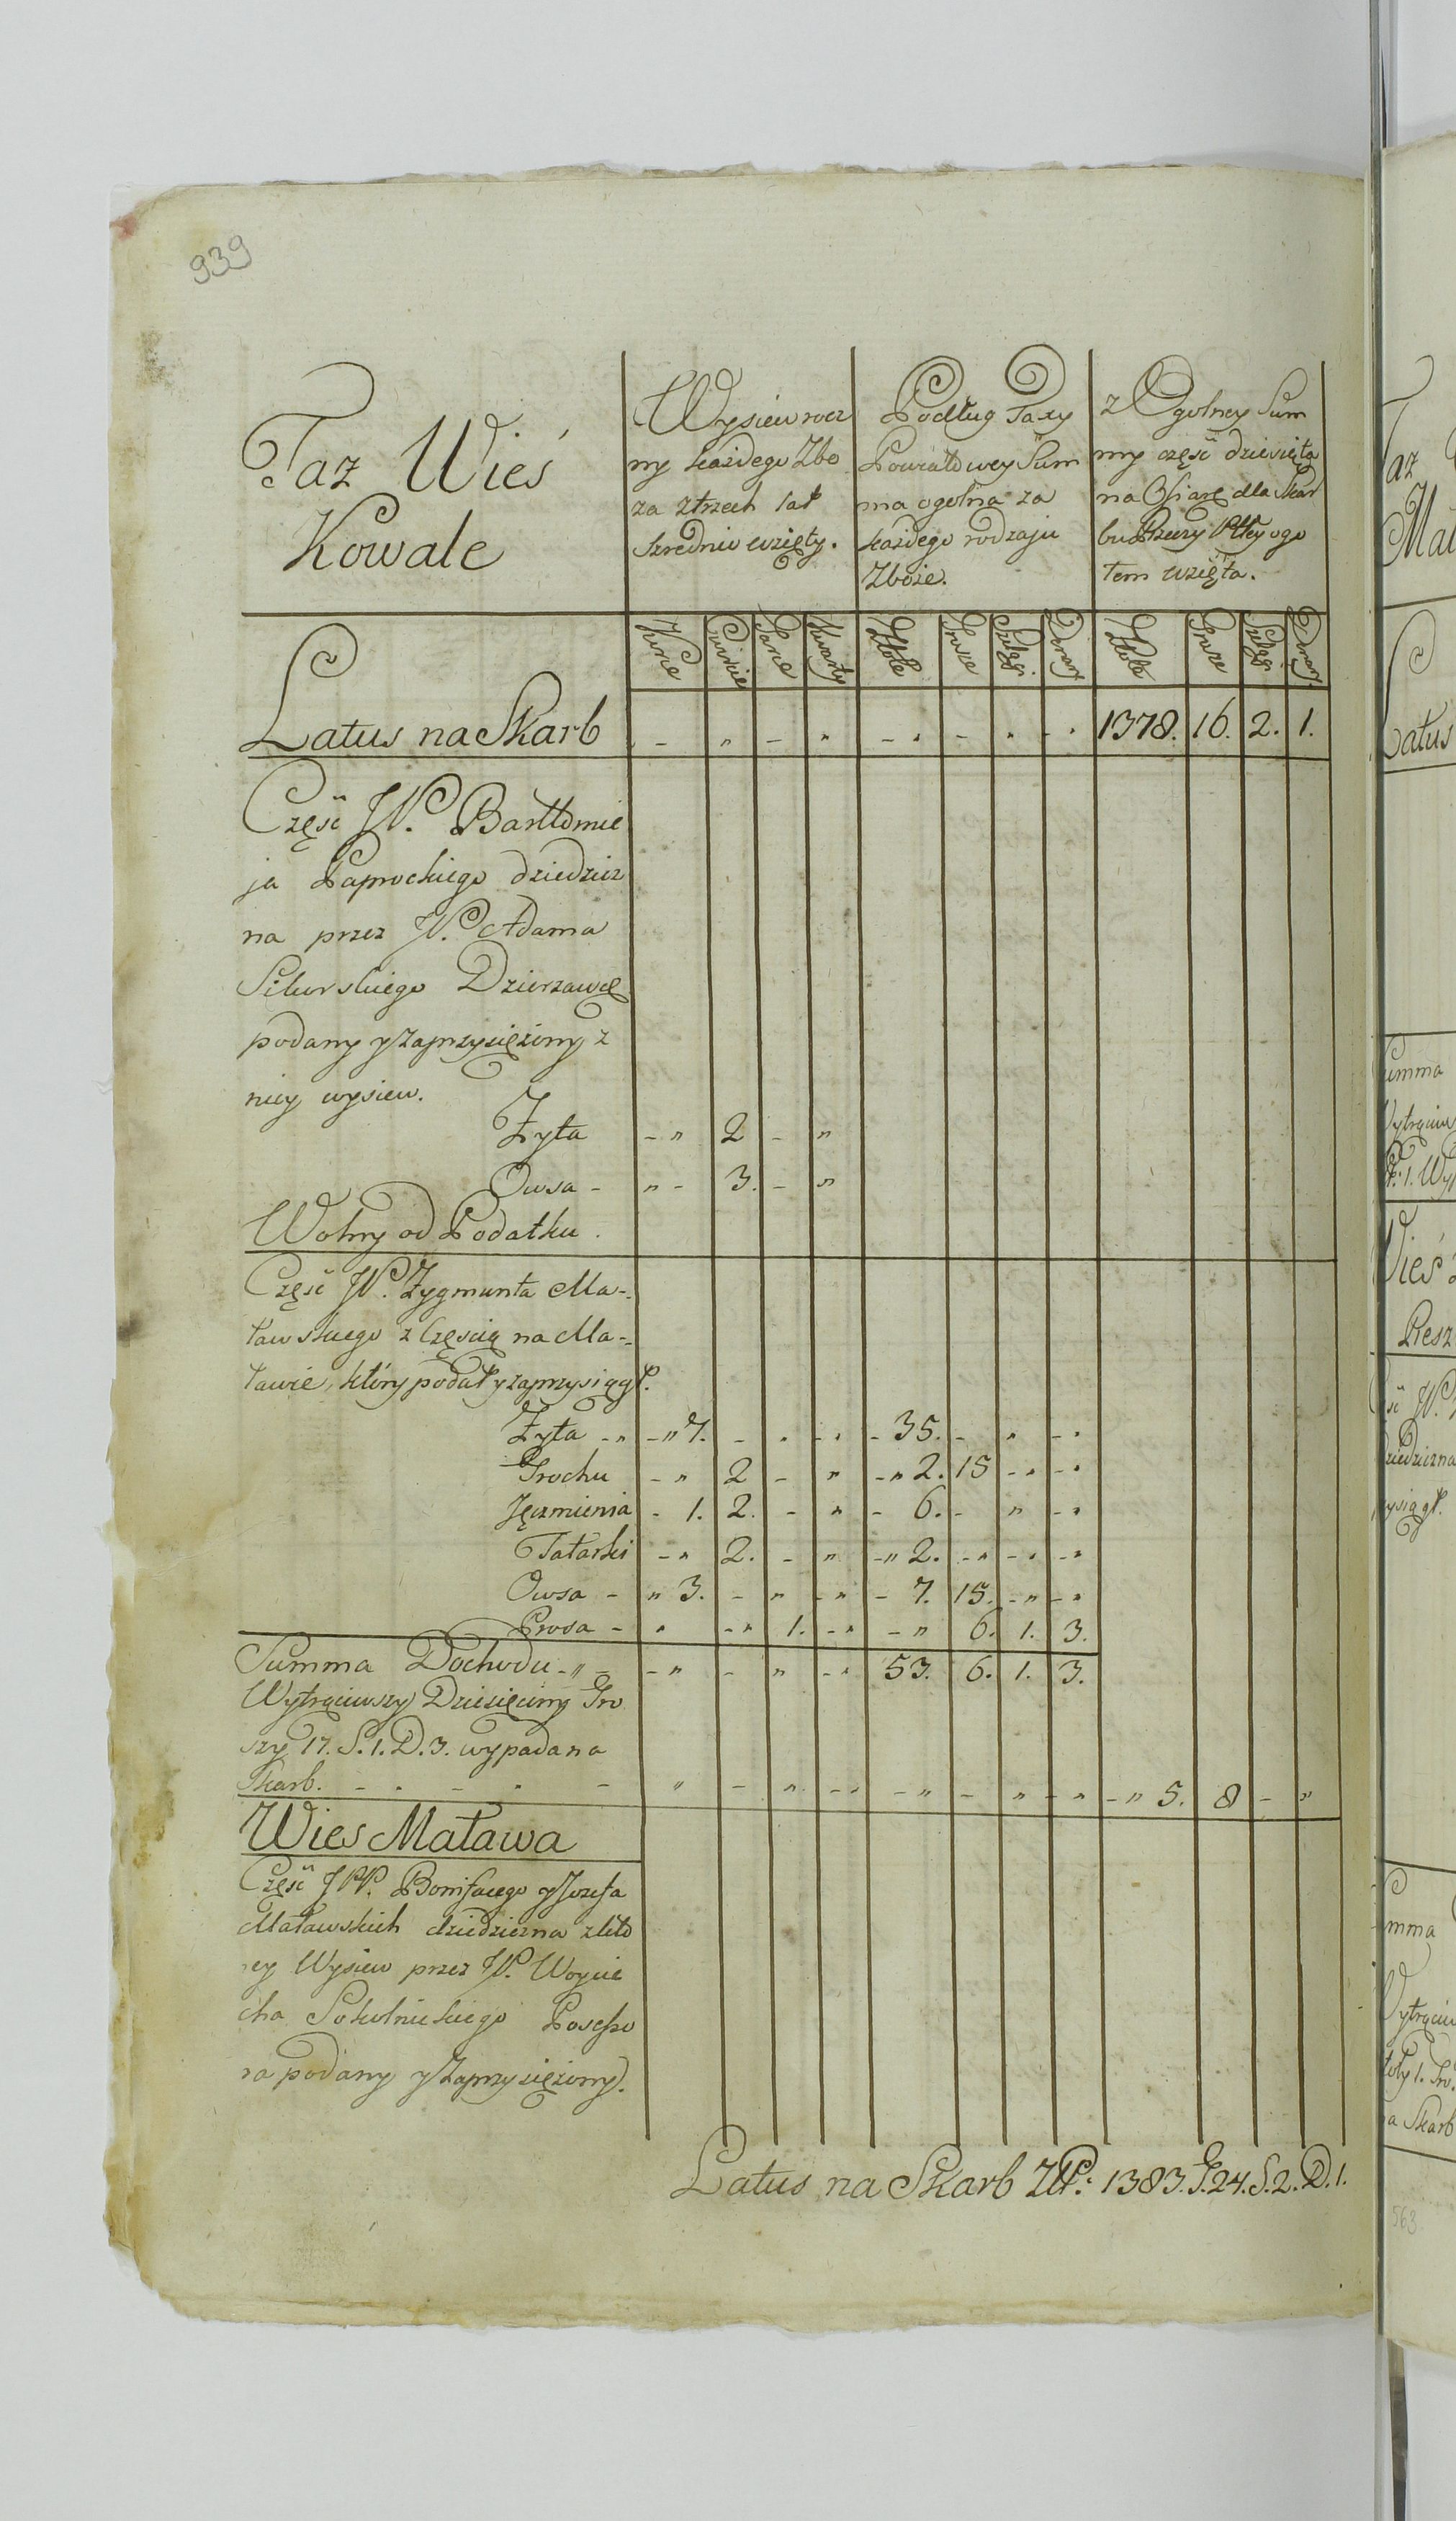 939
Taz Wieś
Kowale
Wysiew rocz
ny każdego Zbo
za ztrzech lat
szrednio wzięty.
Podług Taxy
Powiatowey Sum
ma ogolna za
każdego rodzaju
Zboże.
z Ogolney Sum
my część dziesięta
na Ofiarę dla Skar
bu Rzeczy Pltey ogo
łem wzięta.
Korce Cwiartki Garce Kwarty Złote Grosze Szelągi Denary Złote Grosze Szelągi Denary
Latus na Skarb - " - " - " - " - " 1378. 16. 2. 1.
Część W. Bartłomie
ja Paprockiego dziedzicz
na przez W. Adama
Sikorskiego Dzierzawcę
podany y zaprzysiężony z
niey wysiew.
Żyta - " 2 - "
Owsa - " - 3. - "
Wolny od Podatku.
Część W. Zygmunta Ma-
ławskiego z Częscią na Ma-
ławie, który podał y zaprzysiągł.
Żyta - " - " 7. - " - " - 35. - " - "
Grochu - " 2 - " - " 2. 15 - " - "
Jęczmienia - 1. 2. - " - 6. - " - "
Tatarki - " 2. - " - " 2. - " - " - "
Owsa - " 3. - " - " - 7. 15. - " - "
Prosa - " - " 1. - " - " 6. 1. 3.
Summa Dochodu - " - - " - " - " 53. 6. 1. 3.
Wytrąciwszy Dziesięciny Gro
szy 17. S. 1. D. 3. wypada na
Skarb. - " - " - " - " - " - " - " - " - " - " 5. 8 - "
Wies Maława
Część JPP. Bonifacego y Jozefa
Maławskich dziedziczna z któ
rey Wysiew przez W. Woycie
cha Sokolnickiego Possesso
ra podany y Zaprzysiężony.
Latus na Skarb Złł. P: 1383. G. 24. S. 2. D. 1.
Taz
Latus
Summa
Wieś
563